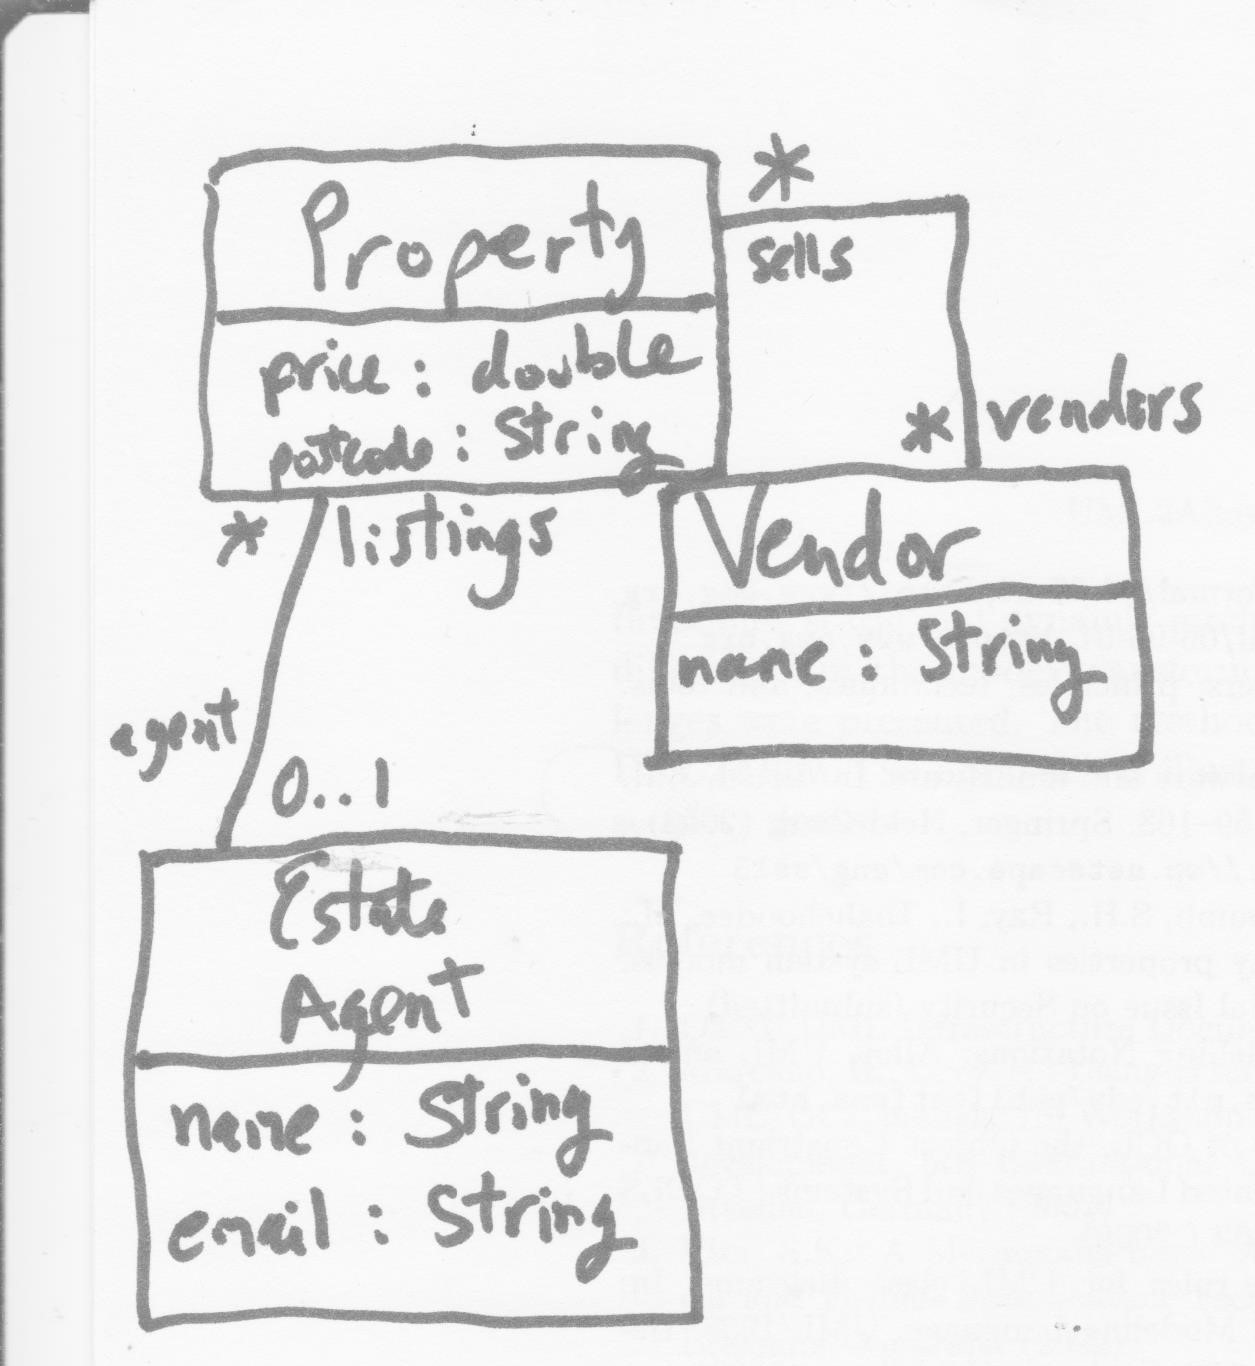 Property
price : double
postcode : String
*
sells
* vendors
Vendor
name : String
* listings
agent
0..1
Estate
Agent
name : String
email : String